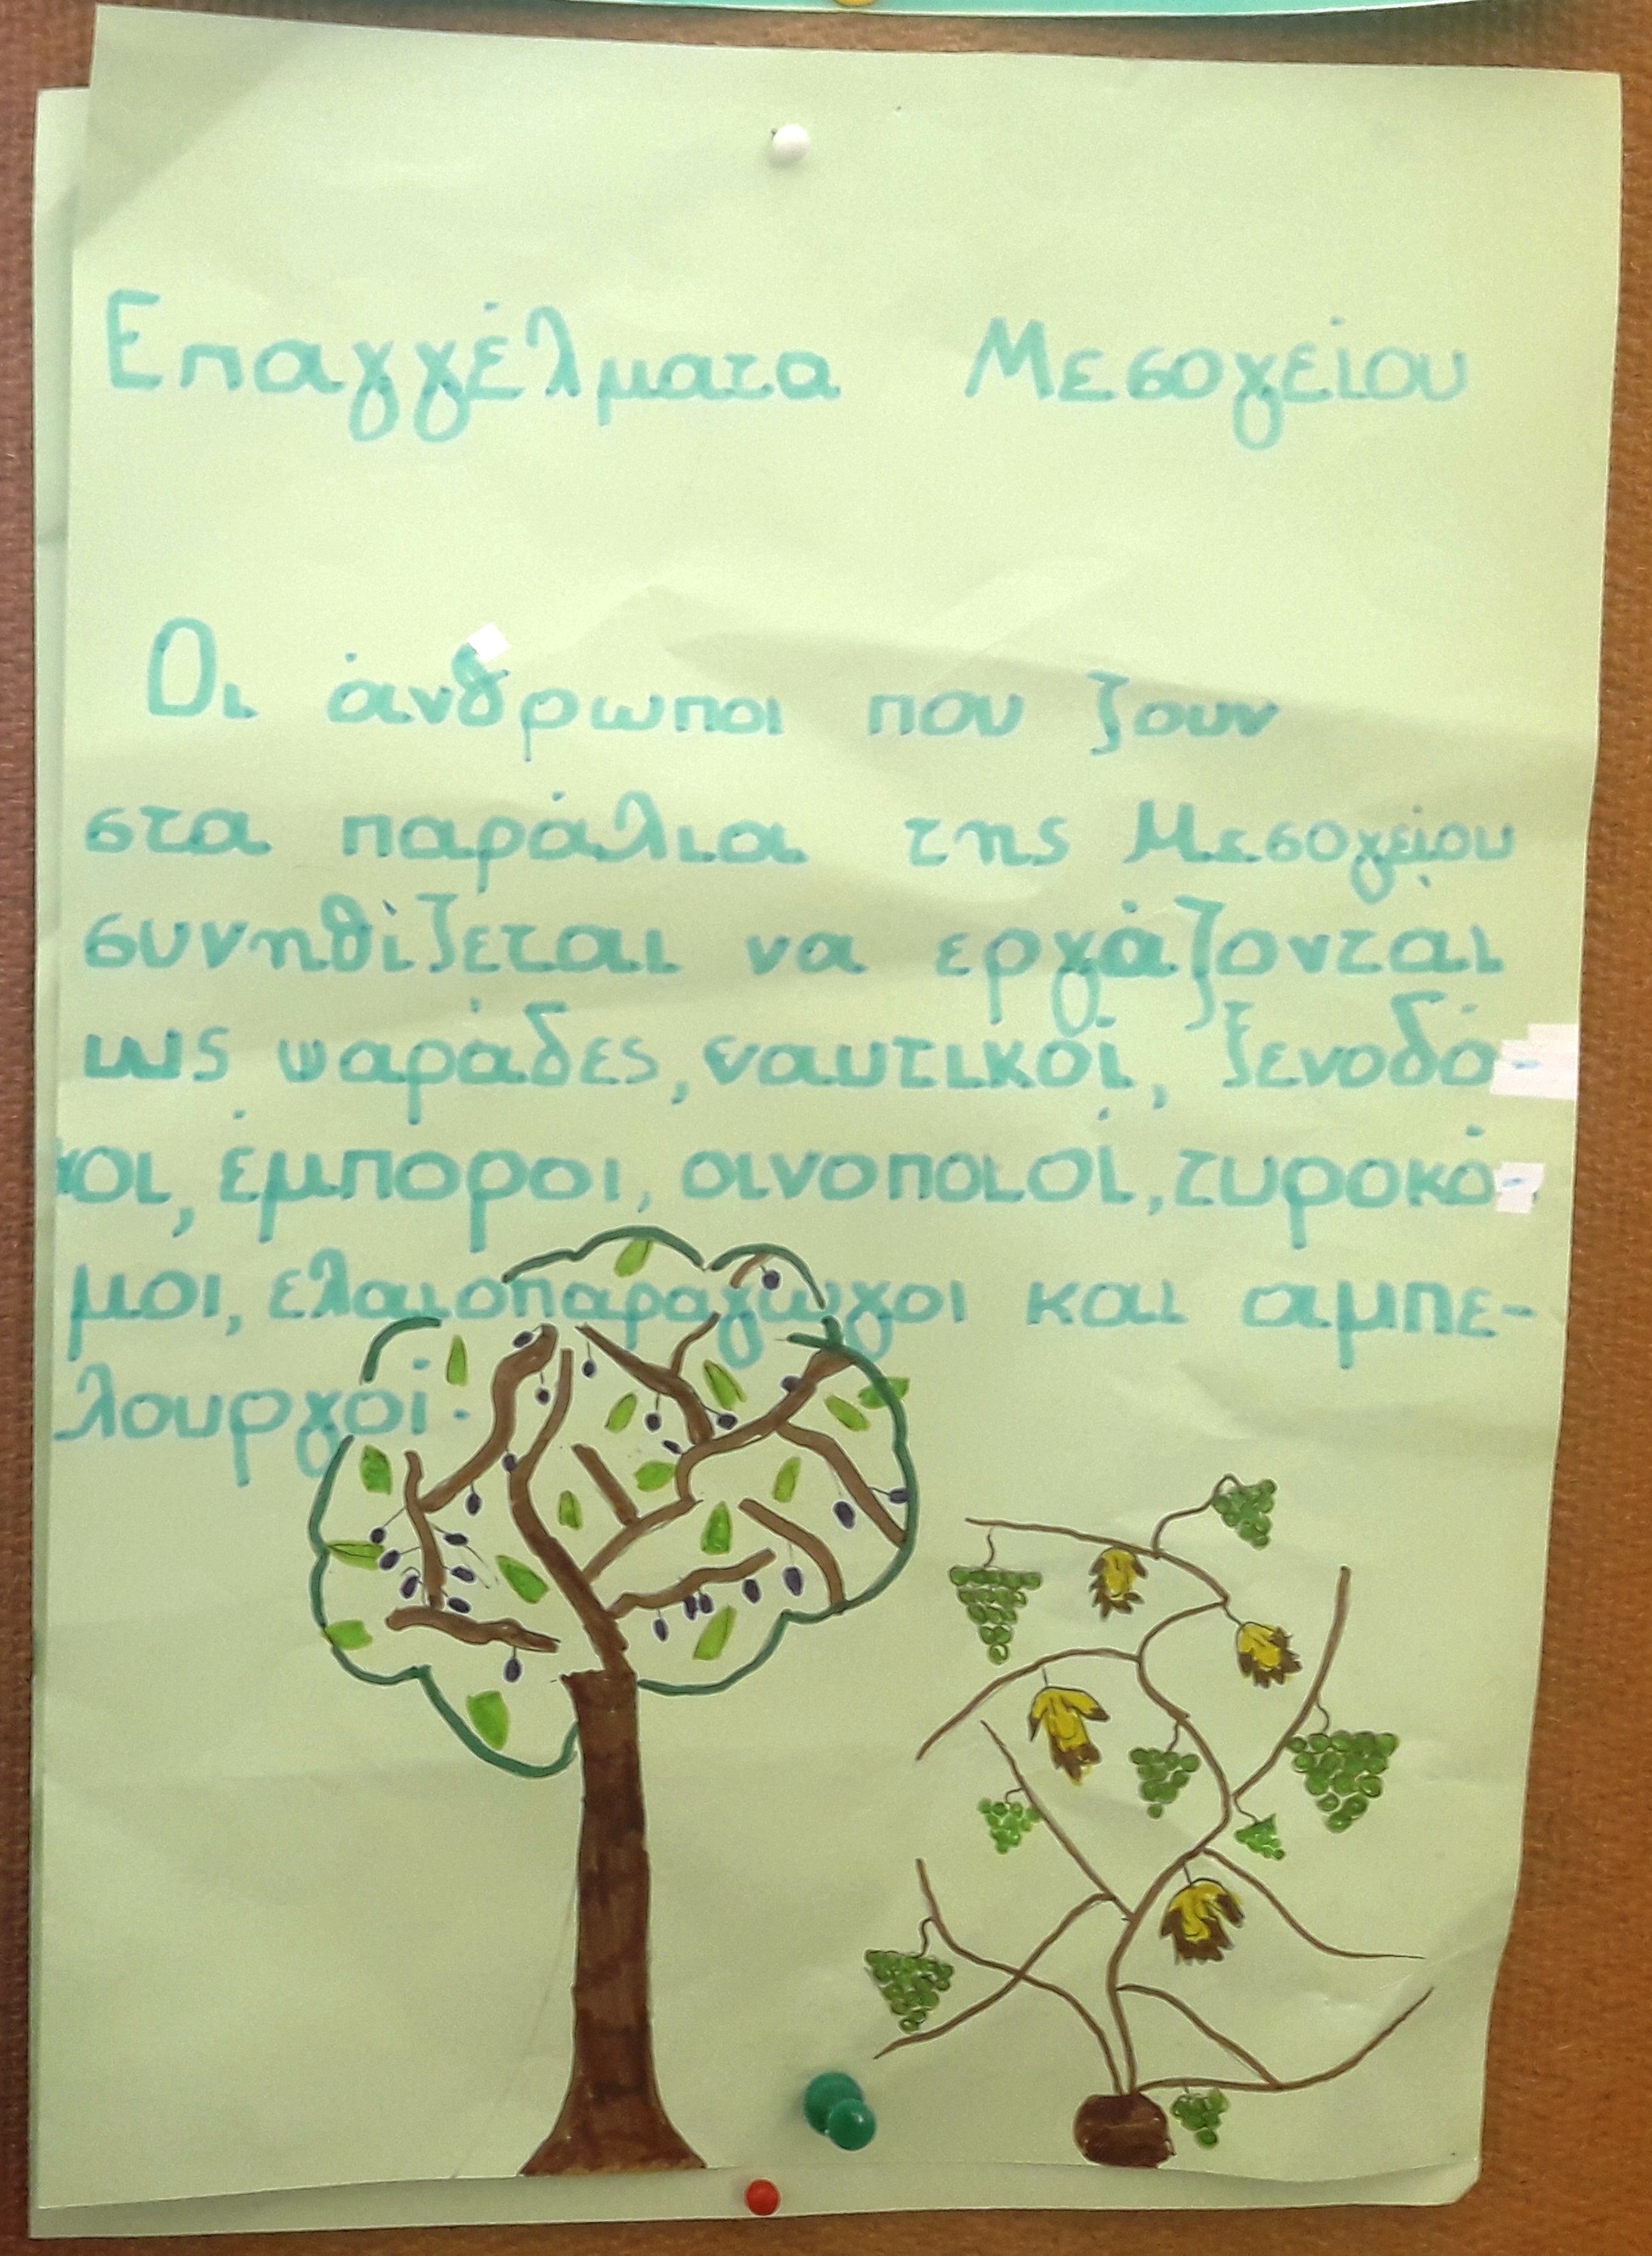 Επαγγέλματα Μεσογείου
Οι άνθρωποι που ζουν
στα παράλια της Μεσογείου
συνηθίζεται να εργάζονται
ως ψαράδες, ναυτικοί, ξενοδό-
χοι, έμποροι, οινοποιοί, τυροκό-
μοι, ελαιοπαραγωγοι και αμπε-
λουργοί.